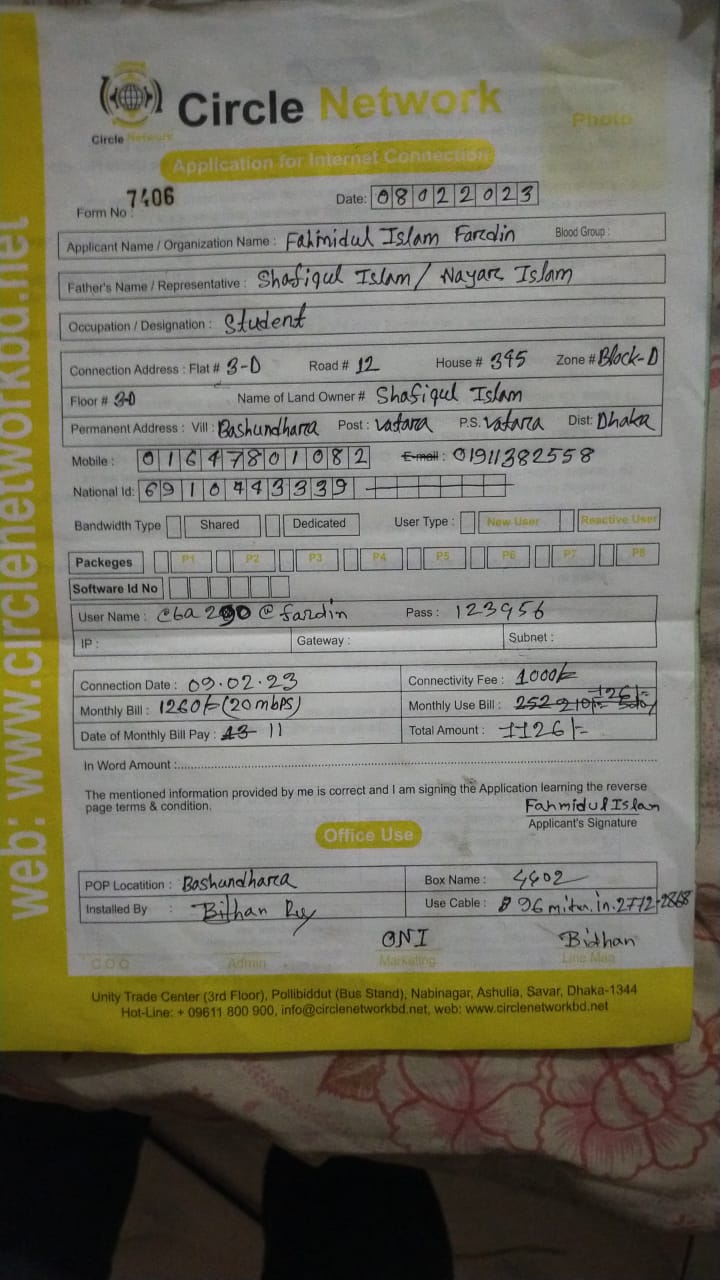 web: www.circlenetworkbd.net
Circle Network
Circle Network
Photo
Application for Internet Connection
Form No : 7406
Date: 08022023
Applicant Name / Organization Name : Fahmidul Islam Faredin Blood Group :
Father's Name / Representative : Shafiqul Islam / Nayare Islam
Occupation / Designation : Student
Connection Address : Flat # 3-D Road # 12 House # 395 Zone # Block-D
Floor # Name of Land Owner # Shafiqul Islam
Permanent Address : Vill : Bashundhara Post : Vatara P.S. Vatara Dist: Dhaka
Mobile : 01647801082 E-mail : 01911382558
National Id: 6910443339
Bandwidth Type Shared Dedicated User Type : New User Reactive User
Packeges P1 P2 P3 P4 P5 P6 P7 P8
Software Id No
User Name : @fardin Pass : 123456
IP : Gateway : Subnet :
Connection Date : 09.02.23 Connectivity Fee : 1000/-
Monthly Bill : 1260/- (20 mbps) Monthly Use Bill : 252 210/- 126/-
Date of Monthly Bill Pay : 13 11 Total Amount : 1126/-
In Word Amount :
The mentioned information provided by me is correct and I am signing the Application learning the reverse
page terms & condition.
Fahmidul Islam
Applicant's Signature
Office Use
POP Locatition : Bashundhara Box Name : 4402
Installed By : Bidhan Use Cable : 96 in. 2772-2868
ONI Bidhan
C O O Admin Marketing Line Man
Unity Trade Center (3rd Floor), Pollibiddut (Bus Stand), Nabinagar, Ashulia, Savar, Dhaka-1344
Hot-Line: + 09611 800 900, info@circlenetworkbd.net, web: www.circlenetworkbd.net